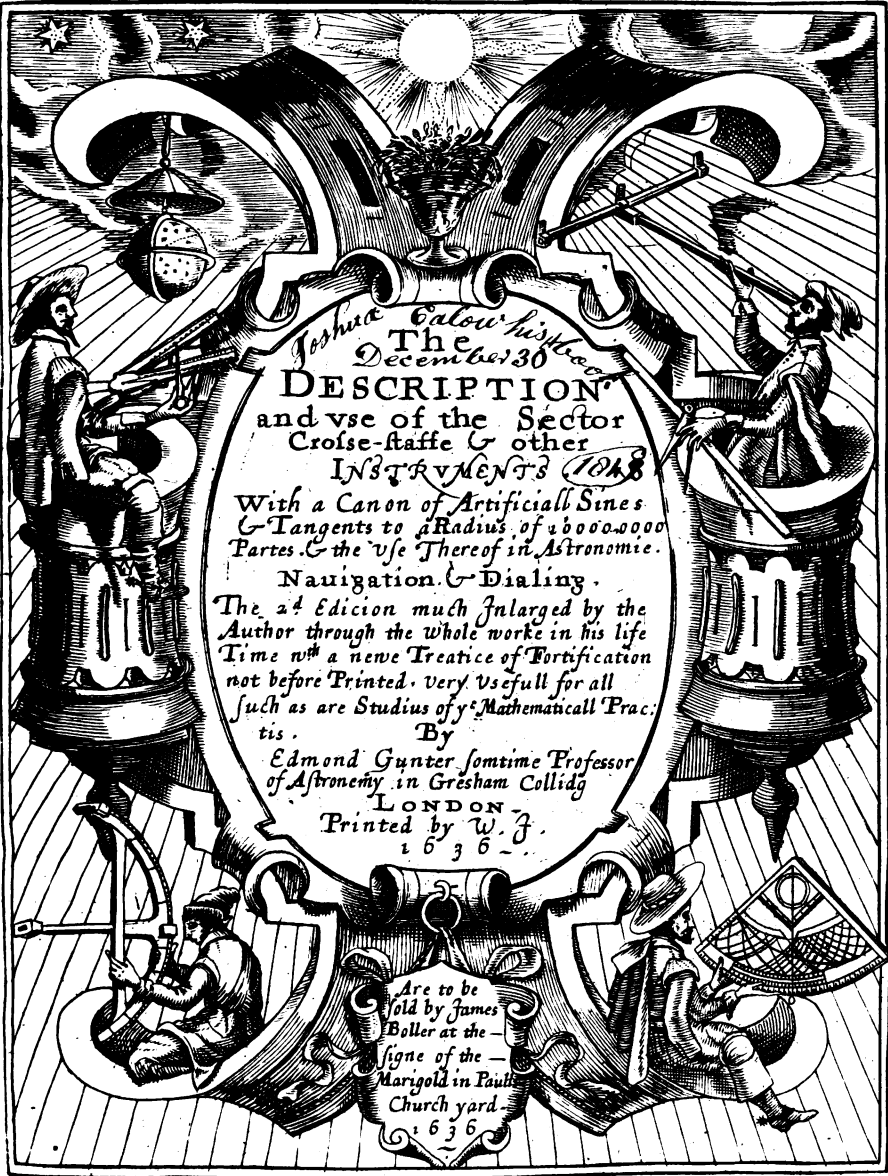 Joshua his
The
December 30
DESCRIPTION
and vse of the Sector
Croſse-ſtaffe & other
INSTRVMENTS 1848
With a Canon of Artificiall Sines
& Tangents to a Radius of 10000.0000
Partes. & the vſe Thereof in Aſtronomie.
Nauigation. & Dialing.
The 2d Edicion much Inlarged by the
Author through the whole worke in his life
Time wth a newe Treatice of Fortification
not before Printed. very vsefull for all
ſuch as are Studius of ye Mathematicall Prac:
tis.
By
Edmond Gunter ſomtime Profeſsor
of Aſtronemy in Gresham Collidg
LONDON
Printed by W. I.
1636
Are to be
ſold by James
Boller at the —
ſigne of the —
Marigold in Pauls
Church yard
1636